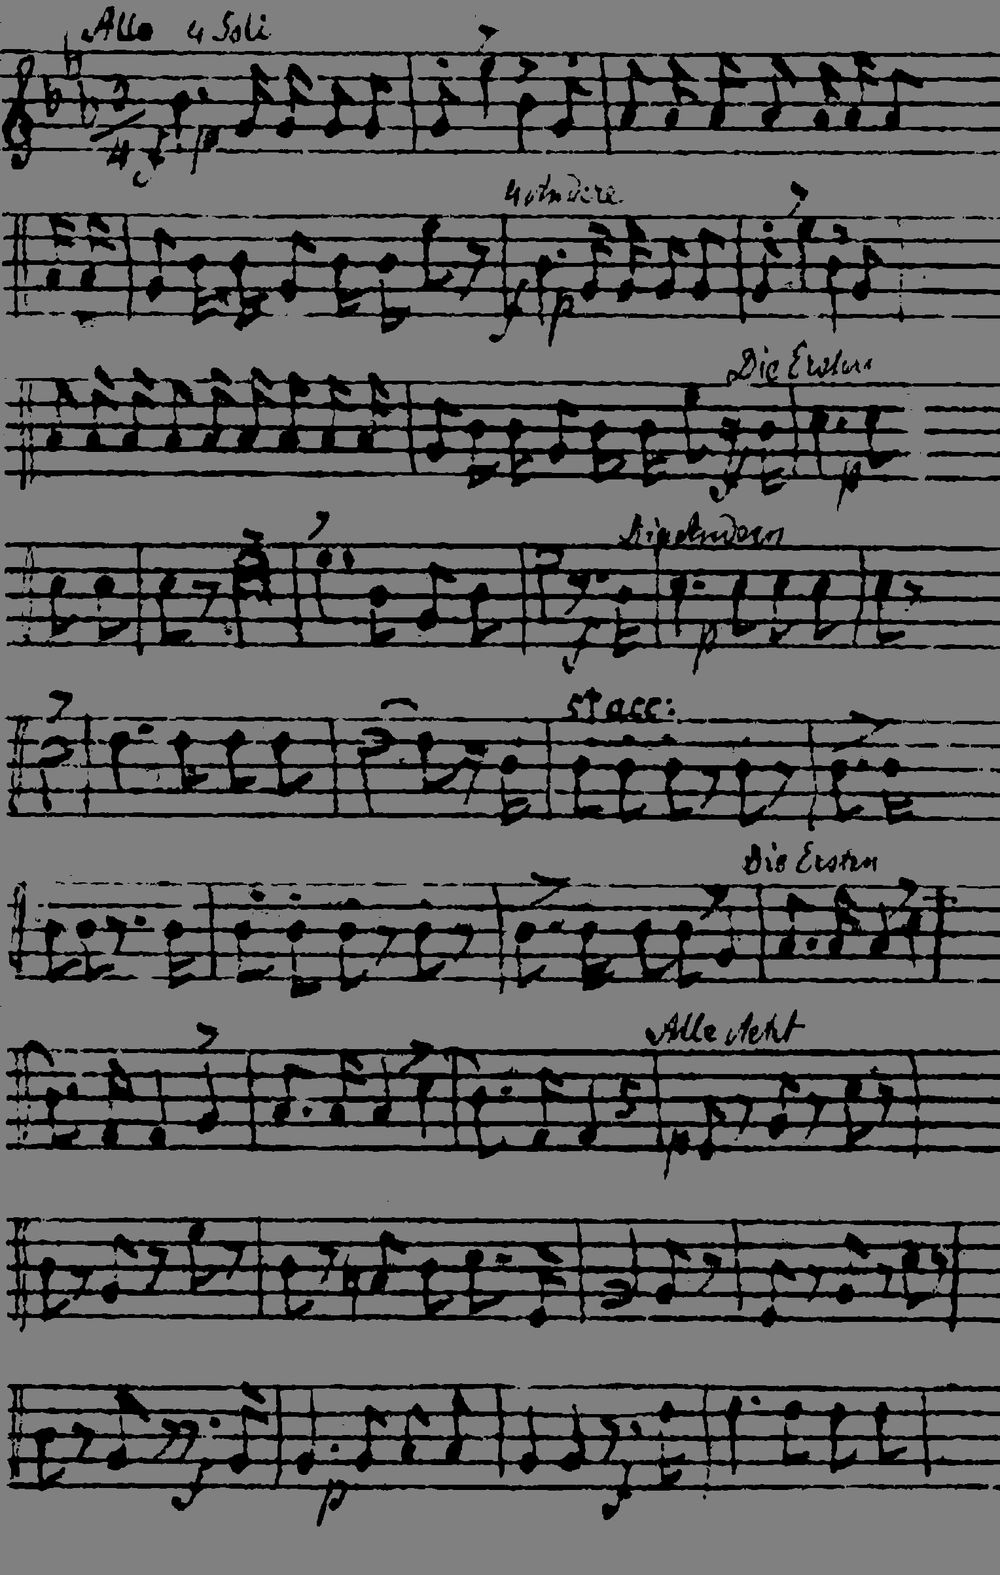 Allo 4 Soli
2
4 f p
4 Andere
f p
Die Ersten
f p
Die Andern
f p
stacc:
Die Ersten
Alle Acht
p
f p f